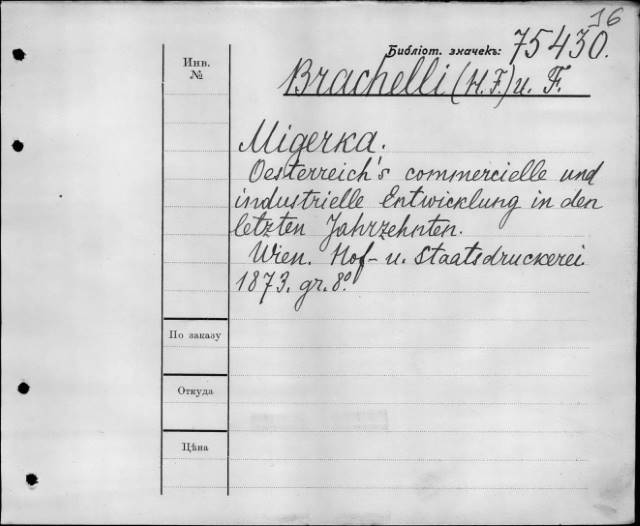 16
Библіот. значекъ: 75430.
Инв.
№
Brachelli (H. F.) u. F.
Migerka.
Oesterreich's commercielle und
industrielle Entwicklung in den
letzten Jahrzehnten.
Wien. Hof- u. Staatsdruckerei
1873. gr. 8°.
По заказу
Откуда
Цѣна